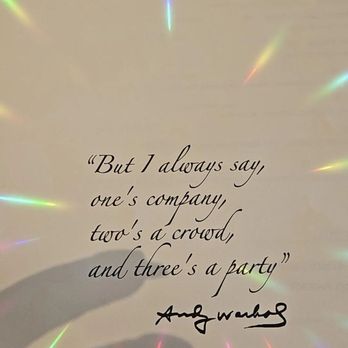 “But I always say,
one's company,
two's a crowd,
and three's a party”
Andy Warhol